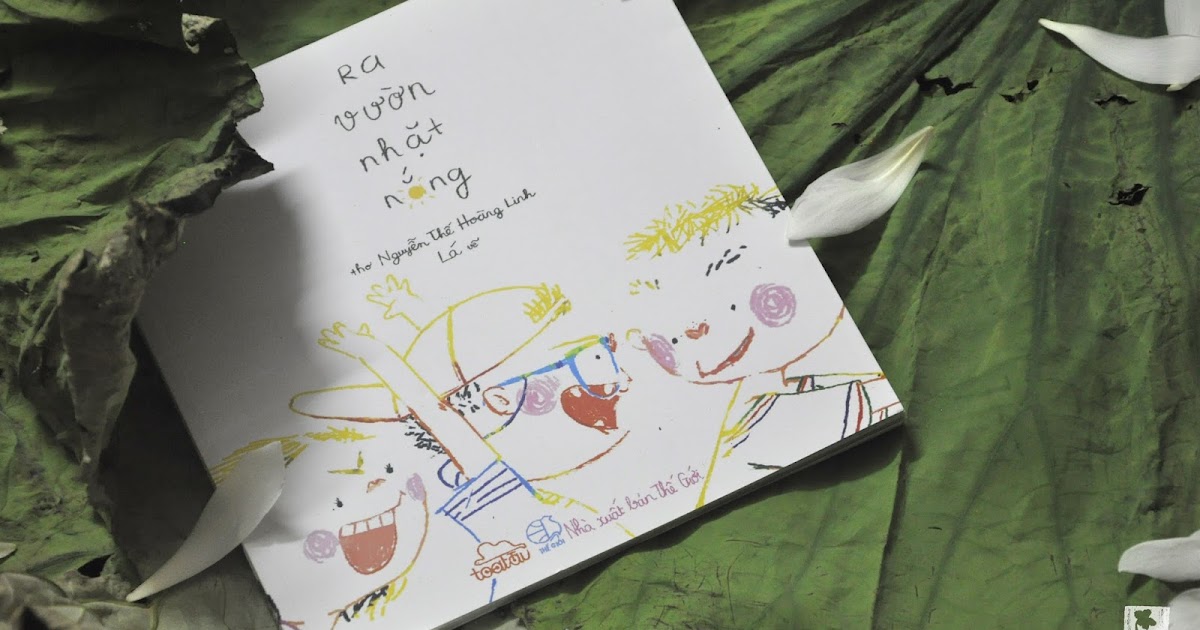 Ra
vườn
nhặt
nắng
thơ Nguyễn Thế Hoàng Linh
Lá vẽ
Nhà xuất bản Thế Giới
THẾ GIỚI